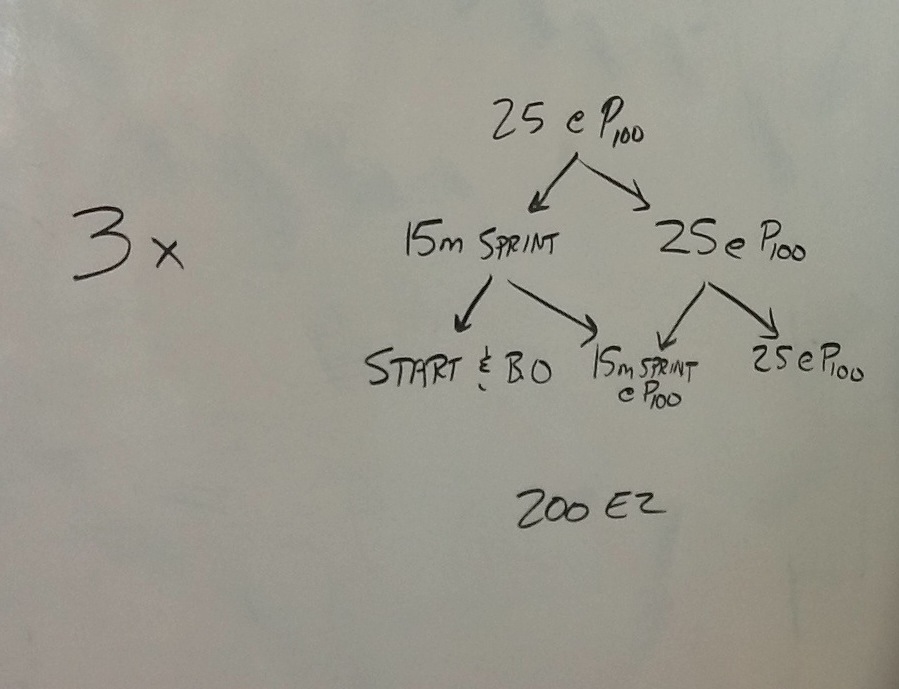 25 @ P100
3x
15m SPRINT
25 @ P100
START & B.O
15m SPRINT
@ P100
25 @ P100
200 EZ